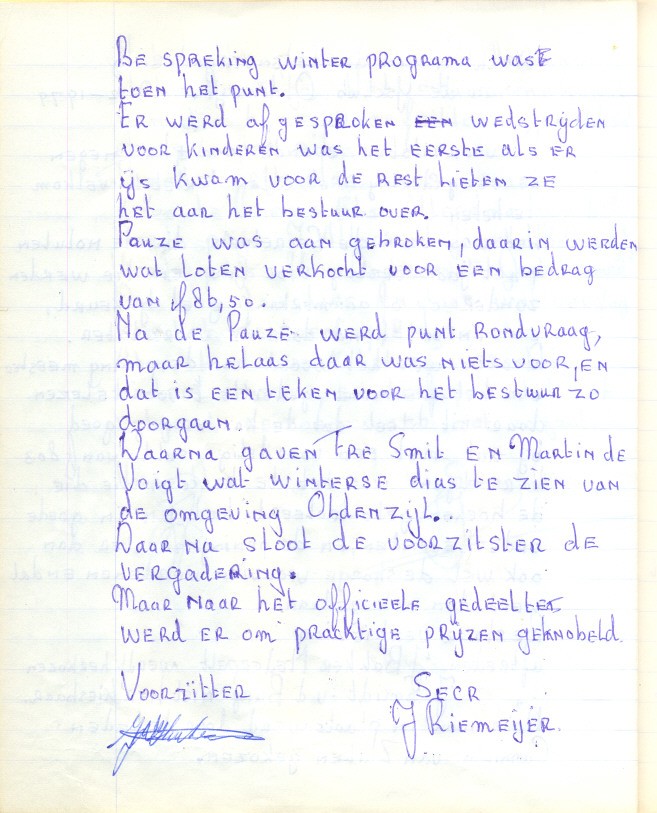 Be spreking winter programa wast
toen het punt.
Er werd af gesproken een wedstrijden
voor kinderen was het eerste als er
ijs kwam voor de rest lieten ze
het aar het bestuur over.
Pauze was aan gebroken, daarin werden
wat loten verkocht voor een bedrag
van f 86,50.
Na de Pauze werd punt Rondvraag,
maar helaas daar was niets voor, en
dat is een teken voor het bestuur zo
doorgaan.
Waarna gaven Fre Smit en Martin de
Voigt wat winterse dias te zien van
de omgeving Oldenzijl.
Daar na sloot de voorzitster de
vergadering.
Maar naar het officieele gedeeltes
werd er om pracktige prijzen geknobeld.
Voorzitter Secr
J Riemeijer.